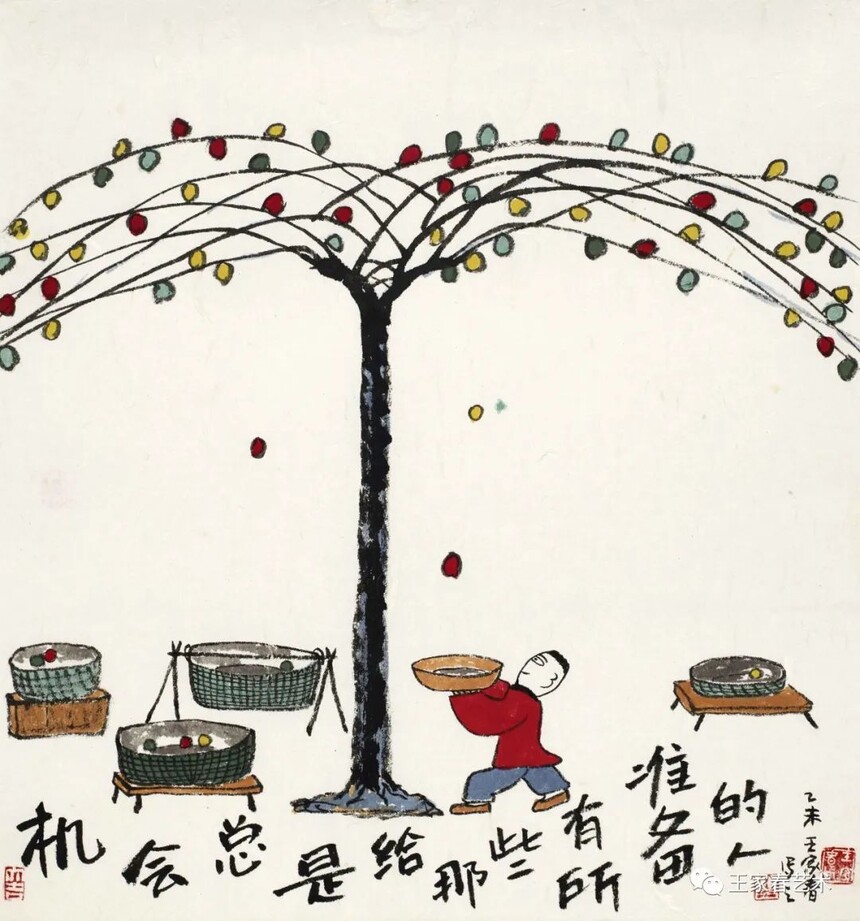 机会总是给那些有所准备的人
乙未 王家春
王家春艺术